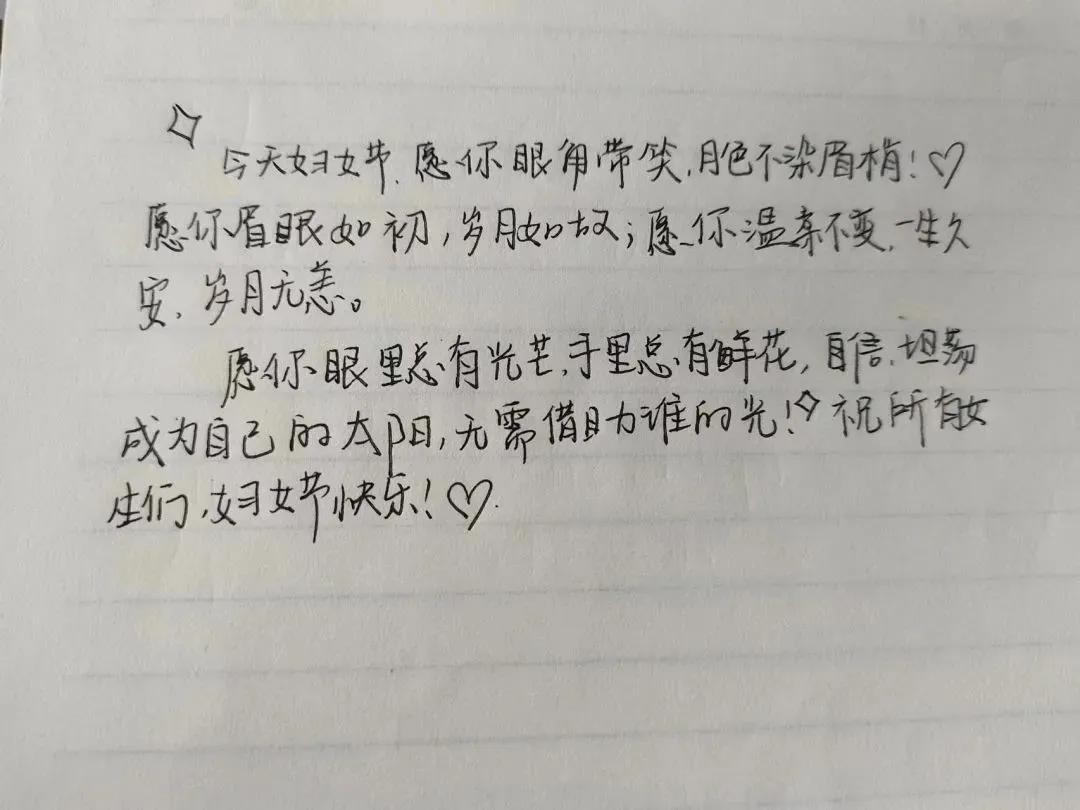 今天妇女节，愿你眼角带笑，月色不染眉梢！♡
愿你眉眼如初，岁月如故；愿你温柔不变，一生久
安，岁月无恙。
愿你眼里总有光芒，手里总有鲜花，自信，坦荡
成为自己的太阳，无需借助谁的光！祝所有女
生们，妇女节快乐！♡